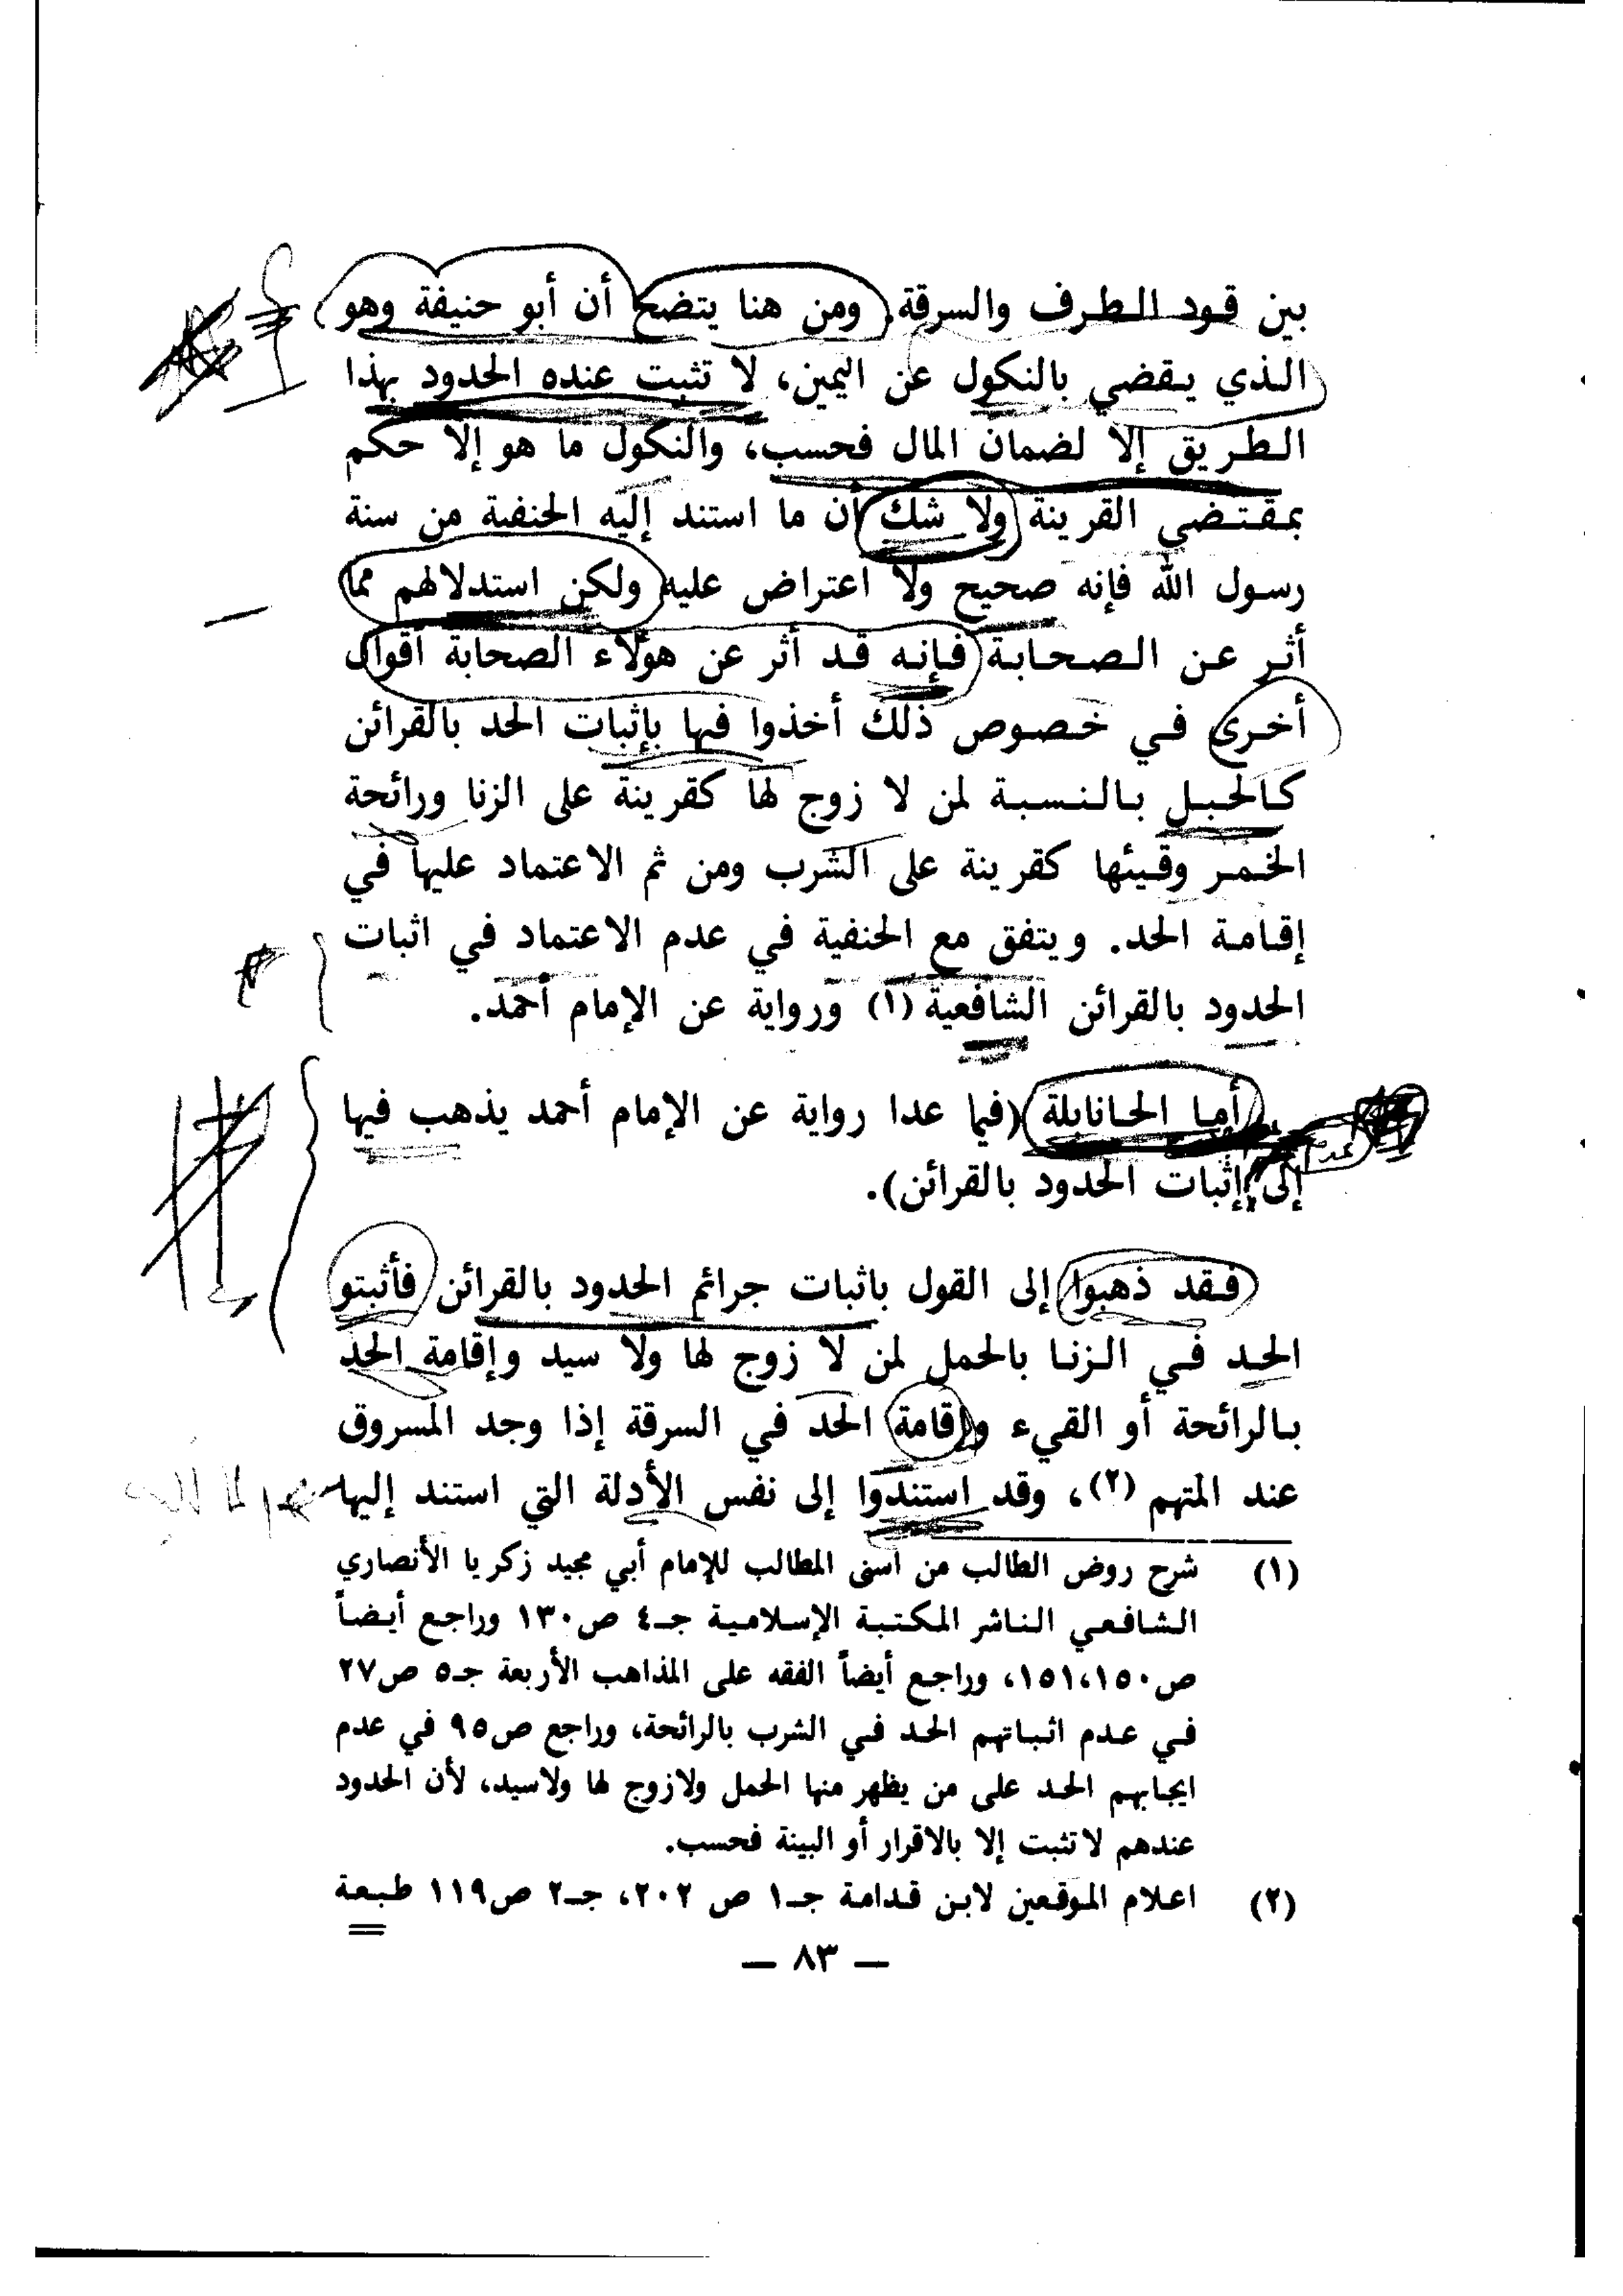 بين قود الطرف والسرقة. ومن هنا يتضح أن أبو حنيفة وهو
الذي يقضي بالنكول عن اليمين، لا تثبت عنده الحدود بهذا
الطريق إلا لضمان المال فحسب، والنكول ما هو إلا حكم
بمقتضى القرينة ولا شك أن ما استند إليه الحنفية من سنة
رسول الله فإنه صحيح ولا اعتراض عليه ولكن استدلالهم مما
أثر عن الصحابة فإنه قد أثر عن هؤلاء الصحابة أقوال
أخرى في خصوص ذلك أخذوا فيها بإثبات الحد بالقرائن
كالحبل بالنسبة لمن لا زوج لها كقرينة على الزنا ورائحة
الخمر وقيئها كقرينة على الشرب ومن ثم الاعتماد عليها في
إقامة الحد. ويتفق مع الحنفية في عدم الاعتماد في اثبات
الحدود بالقرائن الشافعية (١) ورواية عن الإمام أحمد.
أما الحانابلة (فيما عدا رواية عن الإمام أحمد يذهب فيها
إلى إثبات الحدود بالقرائن).
فقد ذهبوا إلى القول باثبات جرائم الحدود بالقرائن فأثبتو
الحد في الزنا بالحمل لمن لا زوج لها ولا سيد وإقامة الحد
بالرائحة أو القيء وإقامة الحد في السرقة إذا وجد المسروق
عند المتهم (٢)، وقد استندوا إلى نفس الأدلة التي استند إليها
(١) شرح روض الطالب من اسنى المطالب للإمام أبي مجيد زكريا الأنصاري
الشافعي الناشر المكتبة الإسلامية جـ٤ ص١٣٠ وراجع أيضاً
ص١٥١،١٥٠، وراجع أيضاً الفقه على المذاهب الأربعة جـ٥ ص٢٧
في عدم اثباتهم الحد في الشرب بالرائحة، وراجع ص٩٥ في عدم
ايجابهم الحد على من يظهر منها الحمل ولازوج لها ولاسيد، لأن الحدود
عندهم لا تثبت إلا بالاقرار أو البينة فحسب.
(٢) اعلام الموقعين لابن قدامة جـ١ ص ٢٠٢، جـ٢ ص١١٩ طبعة
— ٨٣ —